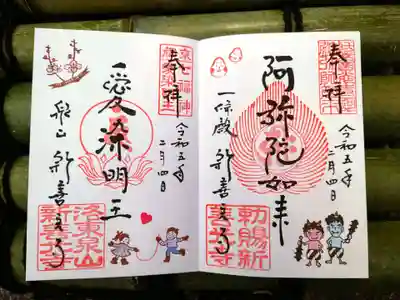 奉拝
令和五年
二月四日
阿弥陀如来
一條殿 新善光寺
勅賜新
善光寺
奉拝
令和五年
二月四日
愛染明王
泉山 新善光寺
洛東泉山
新善光寺